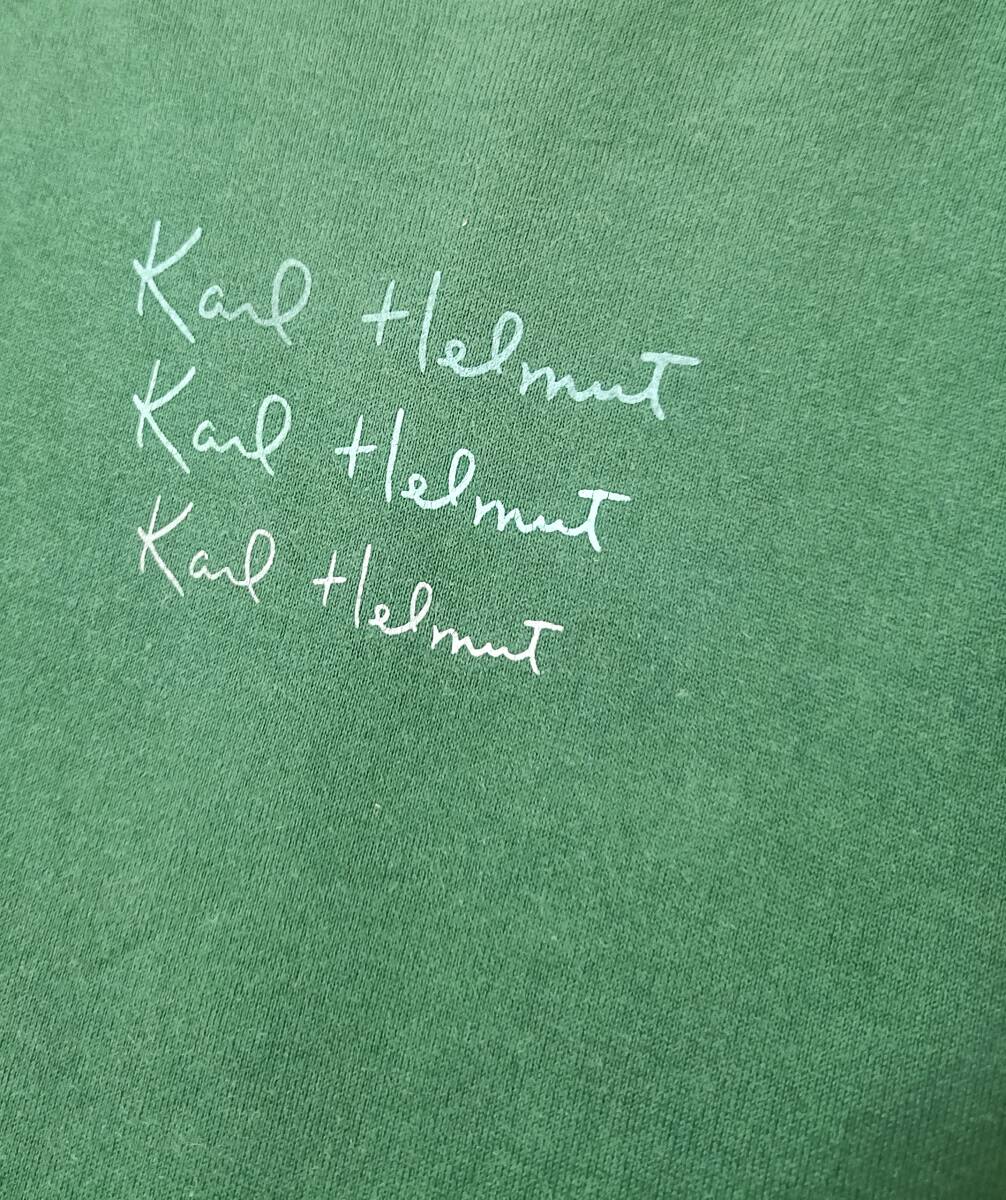 Karl Helmut
Karl Helmut
Karl Helmut